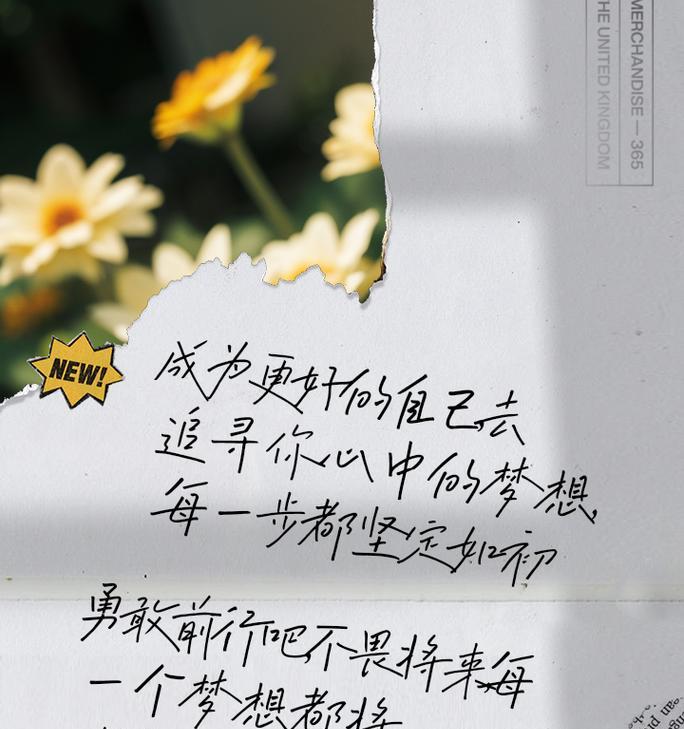 MERCHANDISE — 365
THE UNITED KINGDOM
NEW!
成为更好的自己去
追寻你心中的梦想,
每一步都坚定如初
勇敢前行吧不畏将来每
一个梦想都将